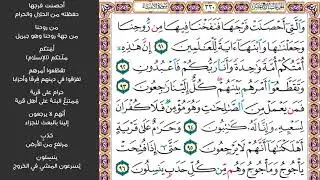 ٣٣٠
وَٱلَّتِىٓ أَحْصَنَتْ فَرْجَهَا فَنَفَخْنَا فِيهَا مِن رُّوحِنَا
وَجَعَلْنَٰهَا وَٱبْنَهَآ ءَايَةً لِّلْعَٰلَمِينَ ٩١ إِنَّ هَٰذِهِۦٓ
أُمَّتُكُمْ أُمَّةً وَٰحِدَةً وَأَنَا۠ رَبُّكُمْ فَٱعْبُدُونِ ٩٢
وَتَقَطَّعُوٓا۟ أَمْرَهُم بَيْنَهُمْ كُلٌّ إِلَيْنَا رَٰجِعُونَ ٩٣
فَمَن يَعْمَلْ مِنَ ٱلصَّٰلِحَٰتِ وَهُوَ مُؤْمِنٌ فَلَا كُفْرَانَ
لِسَعْيِهِۦ وَإِنَّا لَهُۥ كَٰتِبُونَ ٩٤ وَحَرَٰمٌ عَلَىٰ قَرْيَةٍ
أَهْلَكْنَٰهَآ أَنَّهُمْ لَا يَرْجِعُونَ ٩٥ حَتَّىٰٓ إِذَا فُتِحَتْ
يَأْجُوجُ وَمَأْجُوجُ وَهُم مِّن كُلِّ حَدَبٍ يَنسِلُونَ ٩٦
أحصنت فرجها
حفظته من الحلال والحرام
من روحنا
من جهة روحنا وهو جبريل
أمتكم
ملتكم (الإسلام)
تقطعوا أمرهم
تفرقوا في دينهم فرقا وأحزابا
حرام على قرية
ممتنع البتة على أهل قرية
أنهم لا يرجعون
إلينا بالبعث للجزاء
حدب
مرتفع من الأرض
ينسلون
يسرعون المشي في الخروج